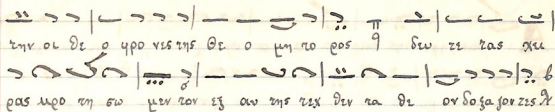 την οι θε ο φρο νες της θε ο μη το ρος δευ τε τας χει
ρας κρο τη σω μεν τον εξ αυ της τεχ θεν τα θε ον δο ξα ζον τες